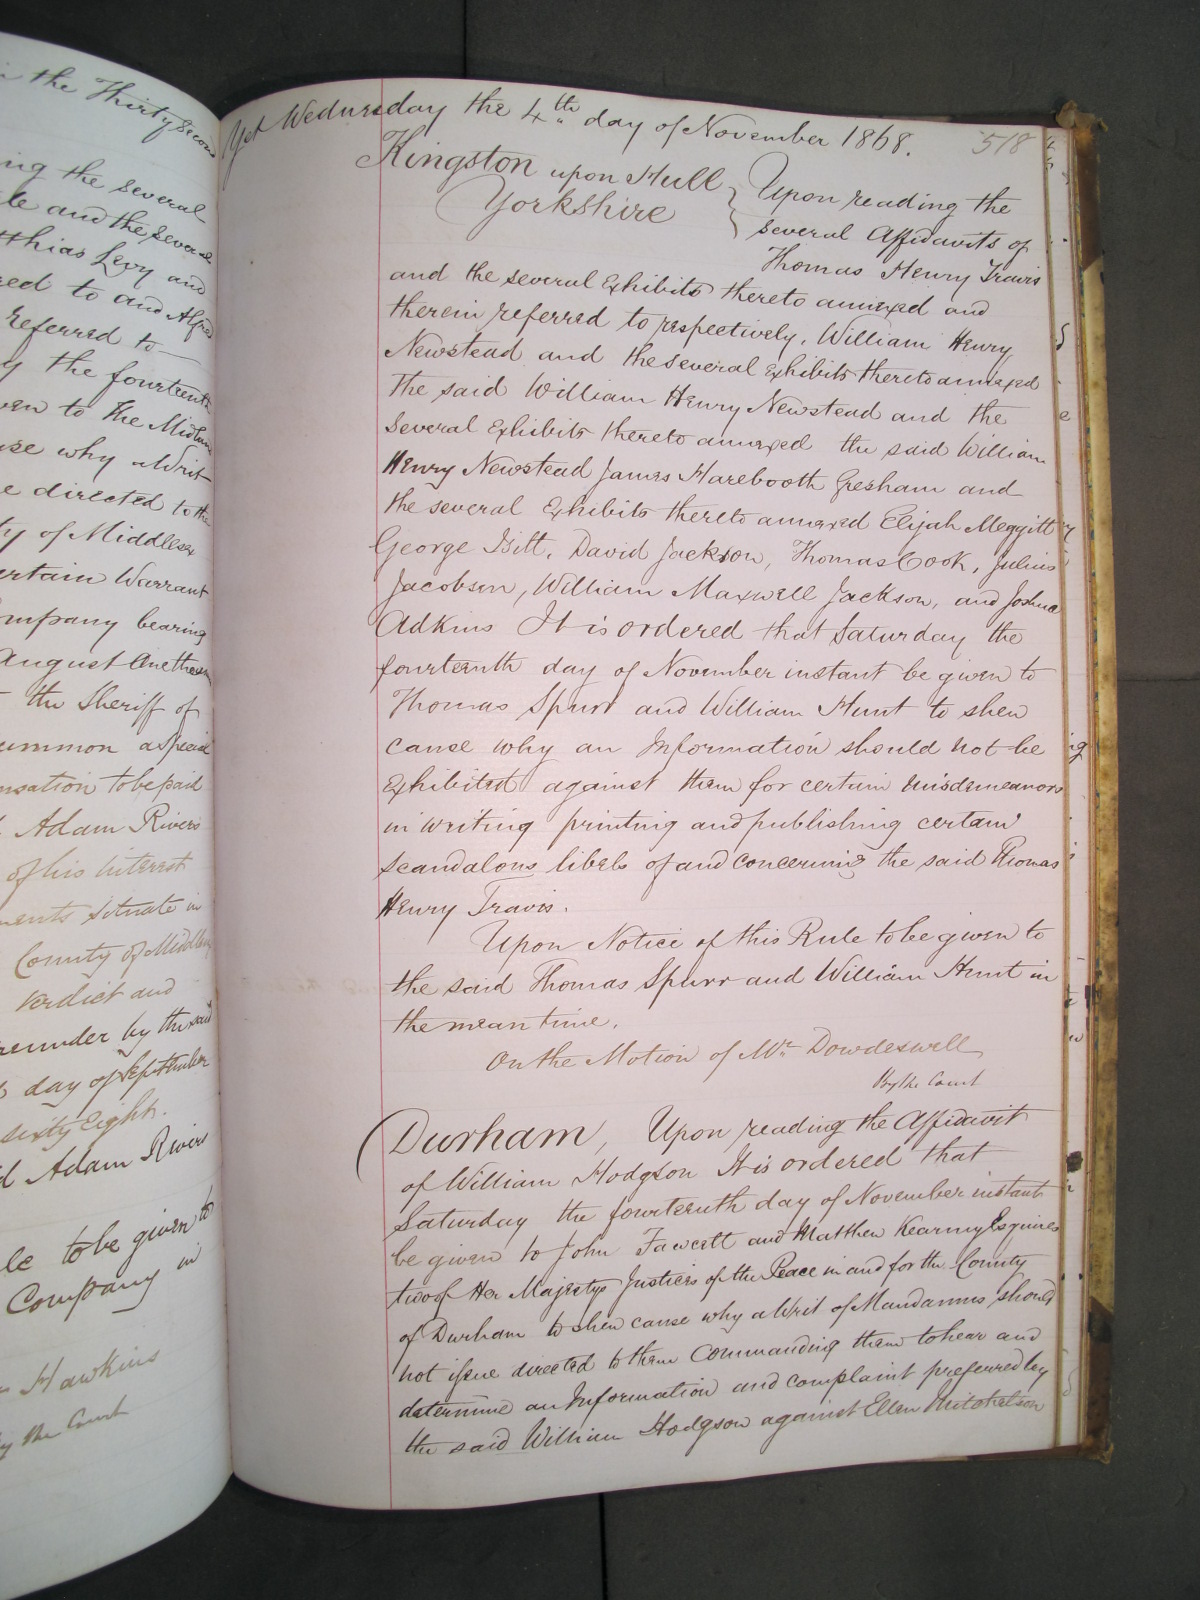 in the Thirty Second
ing the several
le and the several
tthias Levy and
red to and Alfred
referred to
g the fourteenth
ven to the Midland
use why a Writ
e directed to the
ty of Middlesex
ertain Warrant
ompany bearing
August One thousand
the Sheriff of
ummon a special
nsation to be paid
Adam Rivers
of his interest
ments situate in
County of Middlesex
verdict and
reunder by the said
day of September
sixty Eight.
d Adam Rivers
le to be given to
Company in
Hawkins
By the Court
Yet Wednesday the 4th day of November 1868.
518
Kingston upon Hull
Yorkshire
Upon reading the
several Affidavits of
Thomas Henry Travis
and the several Exhibits thereto annexed and
therein referred to respectively, William Henry
Newstead and the several Exhibits thereto annexed
the said William Henry Newstead and the
several Exhibits thereto annexed the said William
Henry Newstead James Harebooth Gresham and
the several Exhibits thereto annexed Elijah Meggitt
George Bitt, David Jackson, Thomas Cook, Julius
Jacobson, William Maxwell Jackson, and Joshua
Adkins It is ordered that Saturday the
fourteenth day of November instant be given to
Thomas Spurr and William Hunt to shew
cause why an Information should not be
Exhibited against them for certain misdemeanors
in writing printing and publishing certain
scandalous libels of and concerning the said Thomas
Henry Travis.
Upon Notice of this Rule to be given to
the said Thomas Spurr and William Hunt in
the mean time.
On the Motion of Mr. Dowdeswell
By the Court
Durham, Upon reading the Affidavit
of William Hodgson It is ordered that
Saturday the fourteenth day of November instant
be given to John Fawcett and Matthew Kearney Esquires
two of Her Majestys Justices of the Peace in and for the County
of Durham to shew cause why a Writ of Mandamus should
not issue directed to them commanding them to hear and
determine an Information and complaint preferred by
the said William Hodgson against Ellen Mitchelson